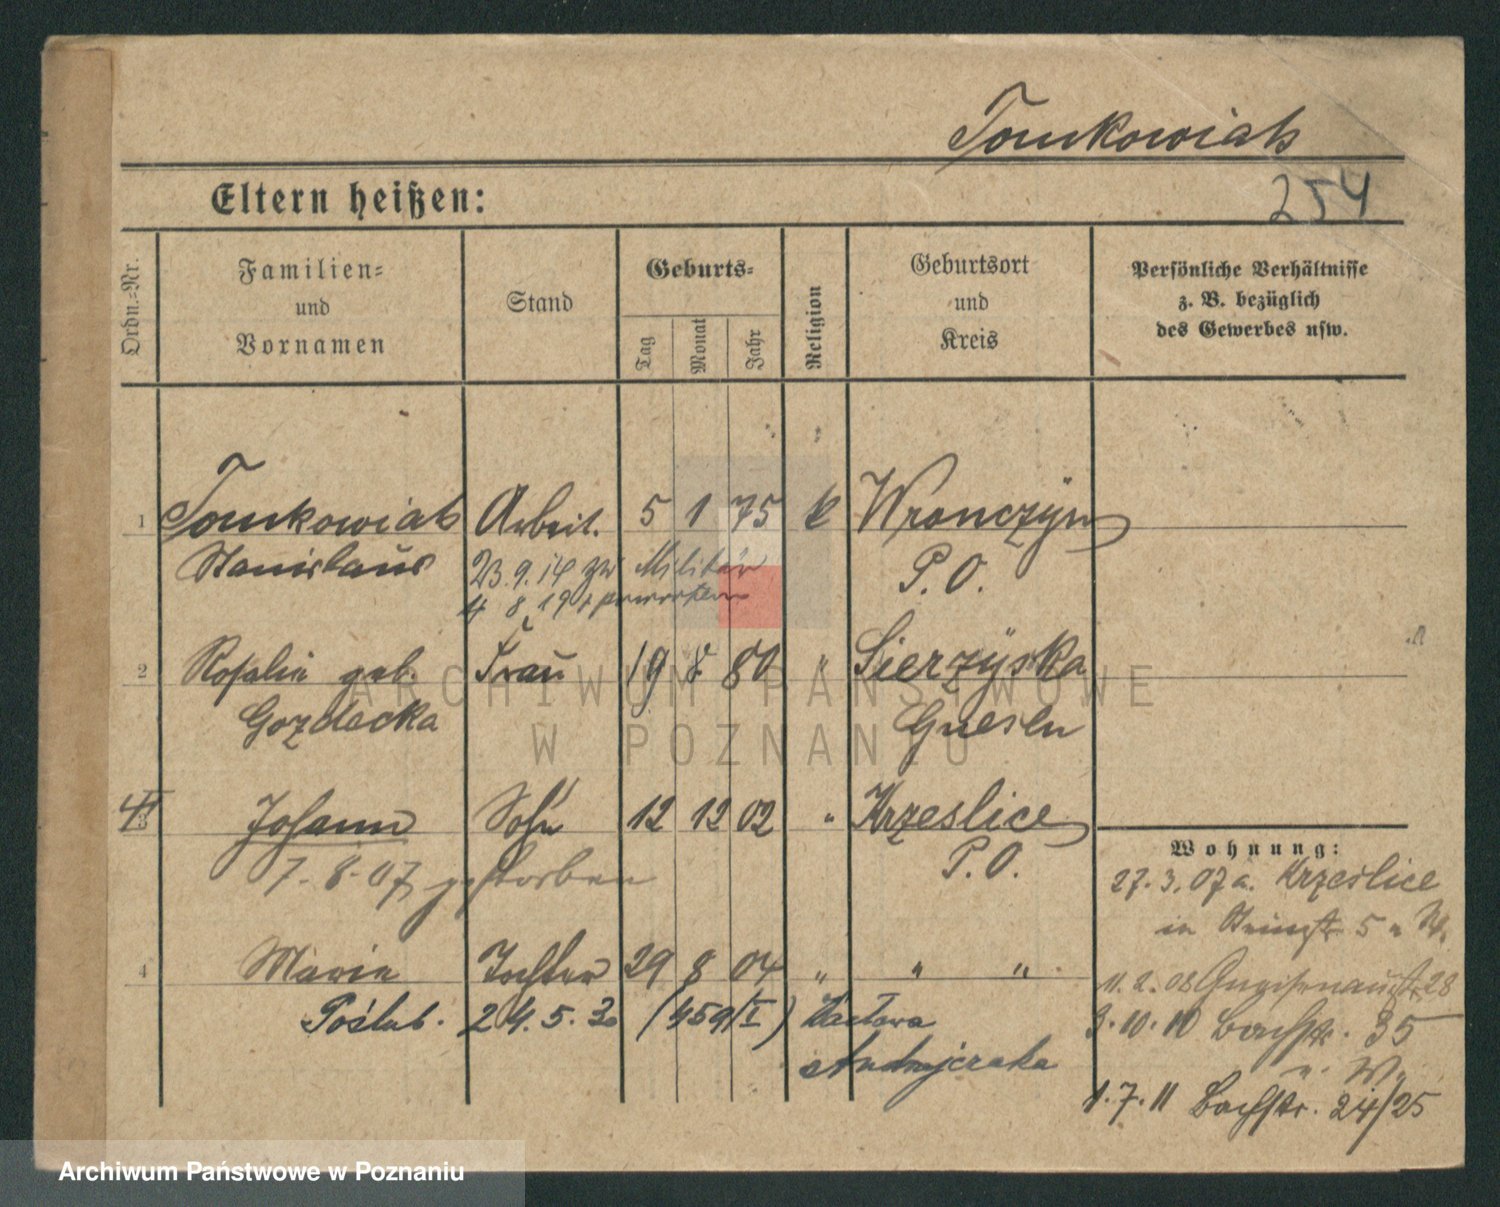 Tomkowiak
254
Eltern heißen:
Ordn.-Nr.
Familien-
und
Vornamen
Stand
Geburts-
Tag
Monat
Jahr
Religion
Geburtsort
und
Kreis
Persönliche Verhältnisse
z. B. bezüglich
des Gewerbes usw.
1 Tomkowiak Arbeit. 5 1 75 k Wronczyn
Stanislaus
P. O.
23.9.14 zu Militär
4 8 19
2 Rosalie geb. Frau 19 8 80 " Sierzyska
Gozdecka Gnesen
3 Johann Sohn 12 12 02 " Krzeslice
7.8.07 gestorben P. O.
4 Marie Tochter 29 8 04 " " "
Poślub. 24.5.30 (459/I) Wacława
Andrzejczaka
Wohnung:
27.3.07 a. Krzeslice
in 5
11.2.08 Gneisenaustr. 28
3.10.10 Bachstr. 35
u. W.
1.7.11 Bachstr. 24/25
ARCHIWUM PAŃSTWOWE
W POZNANIU
Archiwum Państwowe w Poznaniu